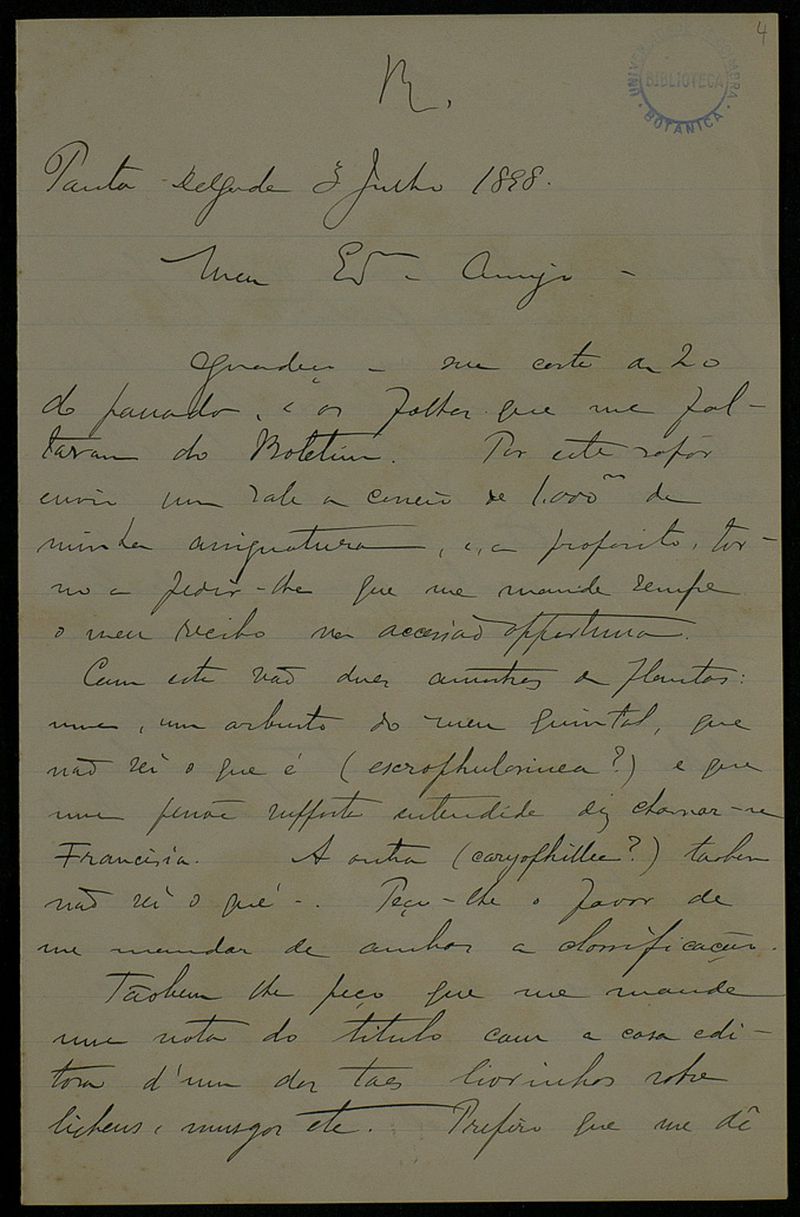 4
R.
UNIVERSIDADE DE COIMBRA
BIBLIOTECA
BOTANICA
Ponta Delgada 3 Julho 1898.
Meu Ex.mo Amigo
sua carta de 20
do passado, e as folhas que me fal-
taram do Boletim. Por este vapor
envio um vale do correio de 1.000 rs da
minha assignatura, e, a proposito, tor-
no a pedir-lhe que me mande sempre
o meu recibo na occasiaõ opportuna.
Com este vaõ duas amostras de plantas:
uma, um arbusto do meu quintal, que
naõ sei o que é (escrophularinea?) e que
uma pessoa supposta entendida diz chamar-se
Francisia. A outra (caryophillea?) tambem
naõ sei o que é. Peço-lhe o favor de
me mandar de ambas a classificação.
Tãobem lhe peço que me mande
uma nota do titulo com a casa edi-
tora d'um dos taes livrinhos sobre
lichens, musgos etc. Prefiro que me dê